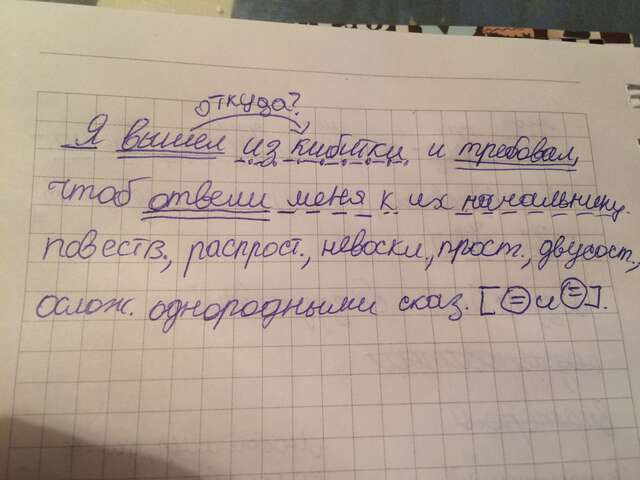 откуда?
Я вышел из кибитки и требовал,
чтоб отвели меня к их начальнику.
повеств., распрост., невоскл., прост., двусост.,
ослож. однородными сказ. [⊜ и ⊜].